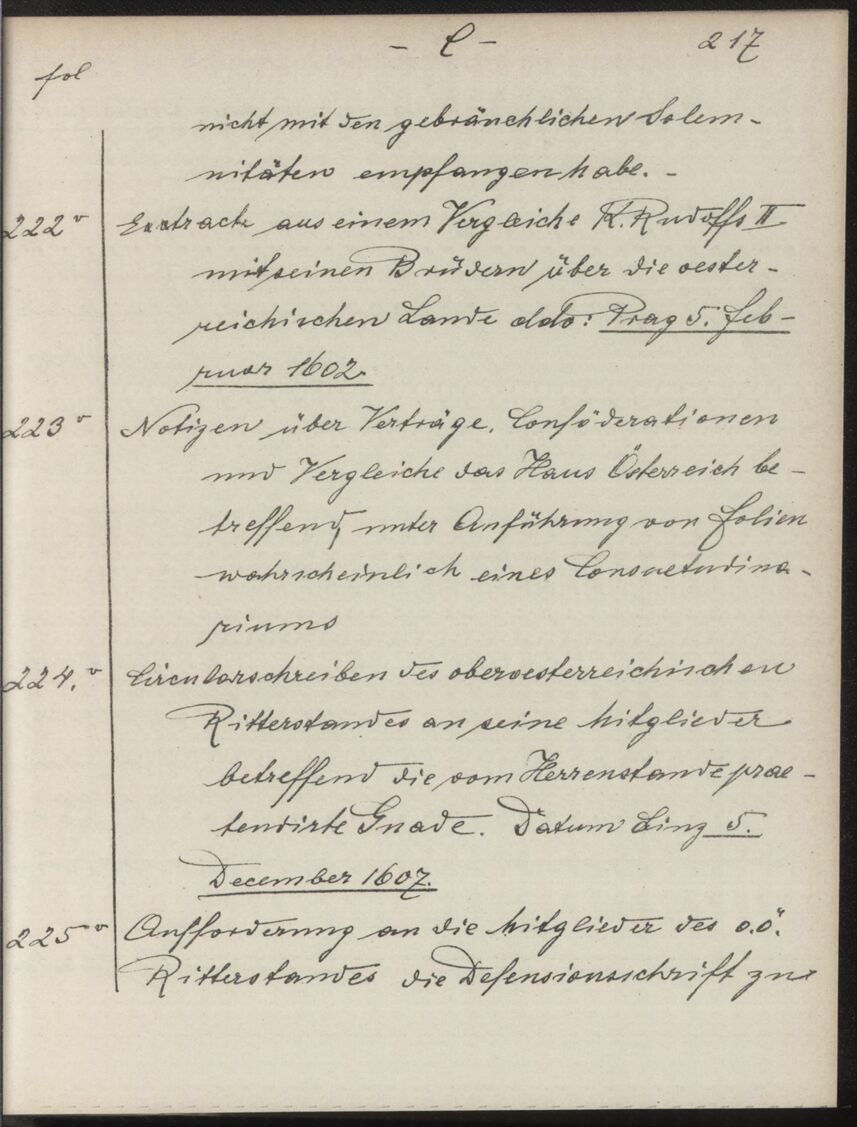 - C - 217
fol
nicht mit den gebräuchlichen Solem-
nitäten empfangen habe. -
222v Extract aus einem Vergleiche K. Rudolfs II
mit seinen Brüdern über die oester-
reichischen Lande ddo: Prag 5. Feb-
ruar 1602.
223v Notizen über Verträge, Conföderationen
und Vergleiche das Haus Österreich be-
treffend, unter Anführung von Folien
wahrscheinlich eines Consuetudina-
riums
224.v Circularschreiben des oberoesterreichischen
Ritterstandes an seine Mitglieder
betreffend die vom Herrenstande prae-
tendirte Gnade. Datum Linz 5.
December 1607.
225v Aufforderung an die Mitglieder des o.ö.
Ritterstandes die Defensionsschrift zu